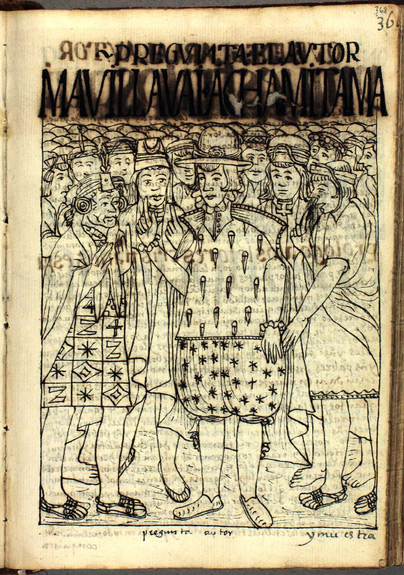 368
PREGVNTA EL AVTOR
MA VILLAVAI ACHAMITAMA
pregunta autor ymuestra